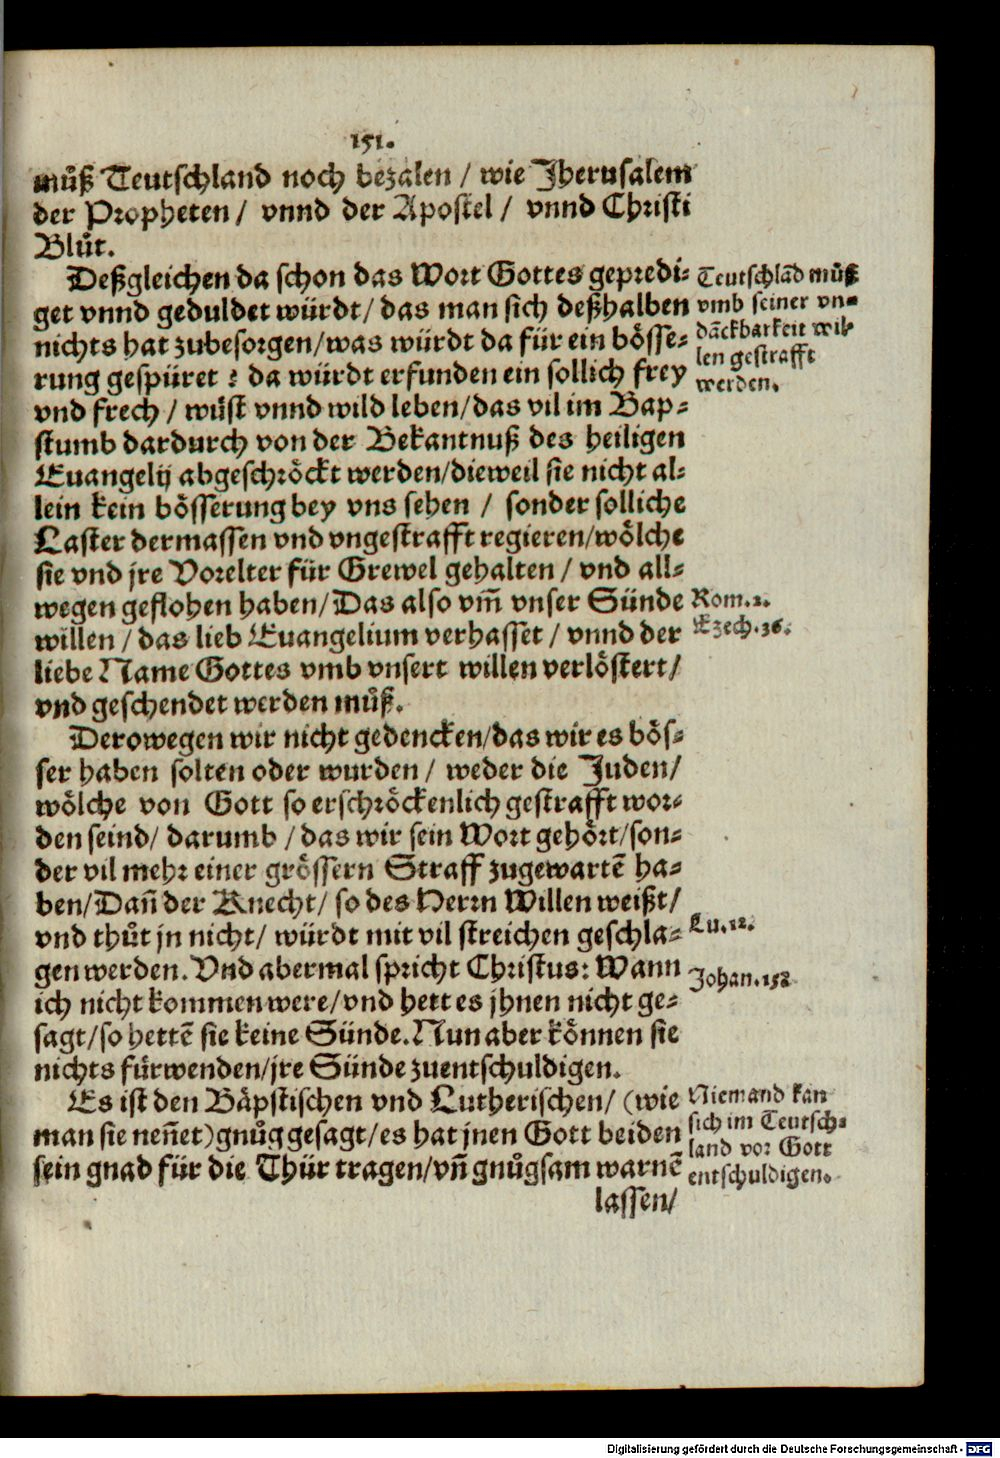 151.
muͦß Teutschland noch bezalen / wie Jherusalem
der Propheten / vnnd der Apostel / vnnd Christi
Bluͦt.
Deßgleichen da schon das Wort Gottes gepredi-
get vnnd geduldet würdt / das man sich deßhalben
nichts hat zubesorgen / was würdt da für ein bösse-
rung gespüret ? da würdt erfunden ein sollich frey
vnd frech / wüst vnnd wild leben / das vil im Bap-
stumb dardurch von der Bekantnuß des heiligen
Euangelij abgeschröckt werden / dieweil sie nicht al-
lein kein bösserung bey vns sehen / sonder solliche
Laster dermassen vnd vngestrafft regieren / wölche
sie vnd jre Vorelter für Grewel gehalten / vnd all-
wegen geflohen haben / Das also vm̃ vnser Sünde
willen / das lieb Euangelium verhasset / vnnd der
liebe Name Gottes vmb vnsert willen verlöstert /
vnd geschendet werden muͦß.
Derowegen wir nicht gedencken / das wir es bös-
ser haben solten oder wurden / weder die Juden /
wölche von Gott so erschröckenlich gestrafft wor-
den seind / darumb / das wir sein Wort gehört / son-
der vil mehr einer grössern Straff zugewartẽ ha-
ben / Dañ der Knecht / so des Herrn Willen weißt /
vnd thuͦt jn nicht / würdt mit vil streichen geschla-
gen werden. Vnd abermal spricht Christus: Wann
ich nicht kommen were / vnd hett es jhnen nicht ge-
sagt / so hettẽ sie keine Sünde. Nun aber können sie
nichts fürwenden / jre Sünde zuentschuldigen.
Es ist den Bäpstischen vnd Lutherischen / (wie
man sie neñet) gnuͦg gesagt / es hat jnen Gott beiden
sein gnad für die Thür tragen / vñ gnuͦgsam warnẽ
lassen /
Teutschlãd muͦß
vmb seiner vn-
dãckbarkeit wil-
len gestrafft
werden.
Rom. 2.
Ezech. 36.
Lu. 12.
Johan. 15
Niemand kan
sich im Teutsch-
land vor Gott
entschuldigen.
Digitalisierung gefördert durch die Deutsche Forschungsgemeinschaft - DFG